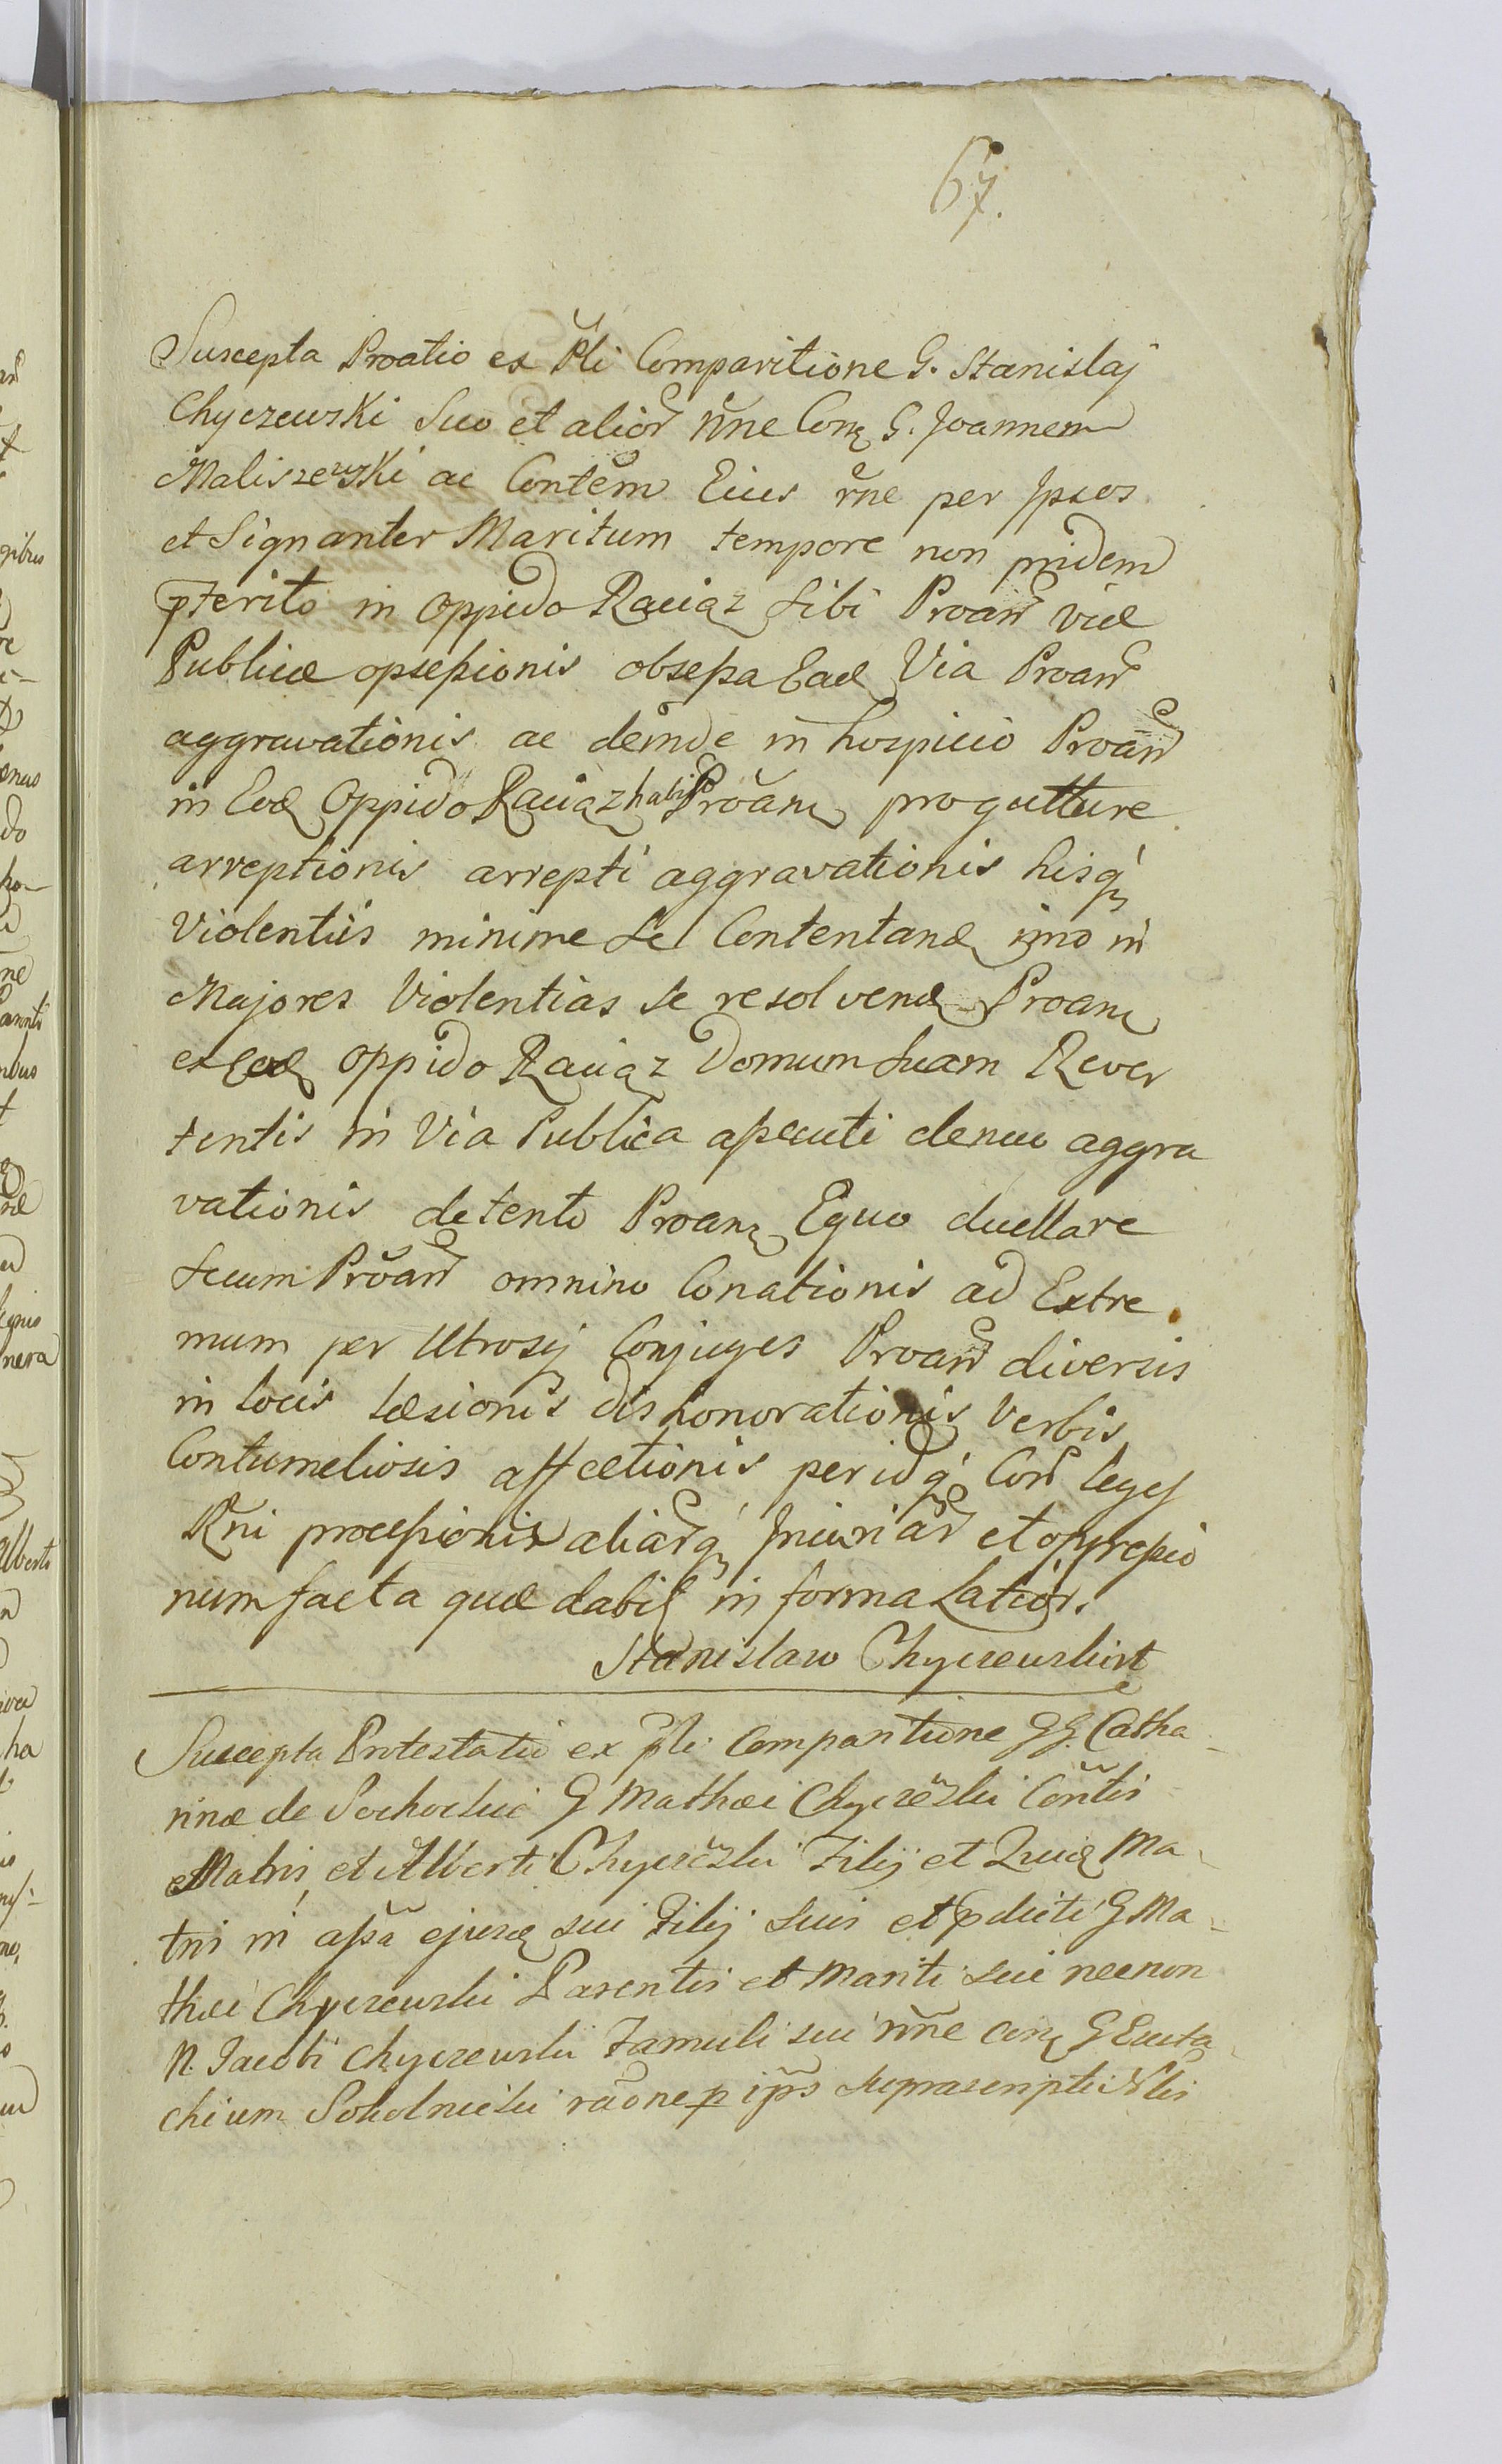 67.
Suscepta Proatio ex Pli Comparitione G. Stanislaj
Chyczewski Suo et alior nne Con G. Joannem
Maliszewski ac Contem Eius rne per Ipsos
et Signanter Maritum tempore non pridem
pterito in Oppido Raciąz Sibi Proan viæ
Publicæ opsessionis obsessa Eade Via Proan
aggravationis ac deinde in hospicio Proan
in Eod Oppido Raciąz habito Proan pro gutture
arreptionis arrepti aggravationis hisq
Violentiis minime Se Contentand imo in
Majores Violentias se resolvend Proan
ex Eod Oppido Raciąz Domum Suam Rever
tentis in Via Publica assecuti denuo aggra
vationis detento Proan Equo duellare
Secum Proan omnino Conationis ad Extre
mum per Utrosq Conjuges Proan diversis
in locis læsionis dishonorationis Verbis
Contumeliosis affectionis per idq Con leges
Rni processionis aliarq Iniuriar et oppressio
num facta quæ dabit in forma Latior.
Stanislaw Chyczewski mt
Suscepta Protestatio ex pli Comparitione GG. Catha-
rinæ de Sochockie G Mathæi Chyczewski Contis
Matris et Alberti Chyczewski Filij et Ma-
tris in assa ejusd sui Filij suis et pdicti G Ma-
thæi Chyczewski Parentis et Mariti sui necnon
N. Jacobi Chyczewski Famuli sui nne con G Eusta-
chium Sokolnicki raone p ipss suprascripti